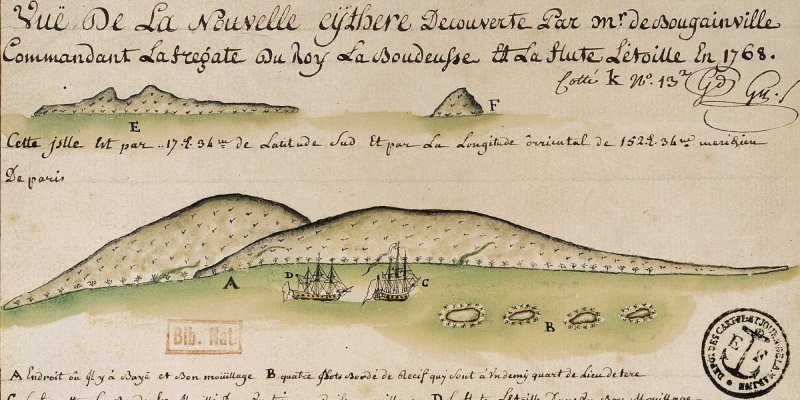 Vuë De La Nouvelle cÿthere Decouverte Par mr. de Bougainville
Commandant La fregate Du Roy La Boudeusse Et La flute L'etoille En 1768.
Cotté k No. 13
E
F
Cette jslle Est par ..17.d. 34m de Latitude Sud Et par La Longitude orriental de 152.d. 34m meridien
De paris
A
D
C
B
Bib. Nat.
DEPOT DES CARTES ET JOURN. DE LA MARINE
A Endroit où jl y á Bayë et Bon moüillage B. quatre jlots Bordé de Recif qui sont á un demy quart de Lieu de tere